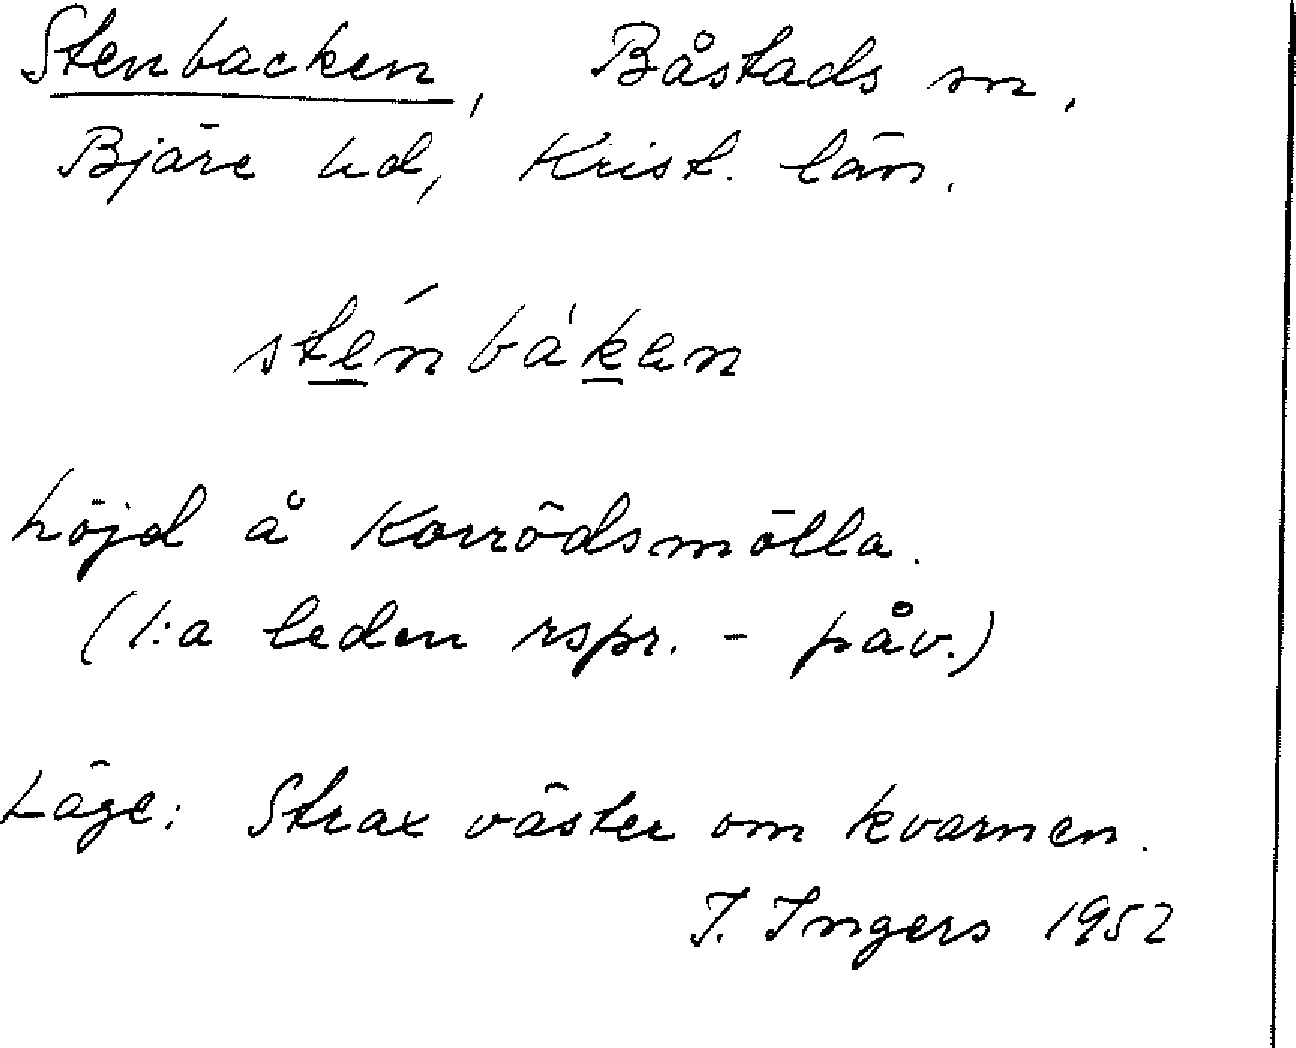 Stenbacken, Båstads sn.
Bjäre hd, Krist. län.
sténbàken
höjd å Korrödsmölla.
(1:a leden rspr. - påv.)
Läge: Strax väster om kvarnen.
I. Ingers 1952